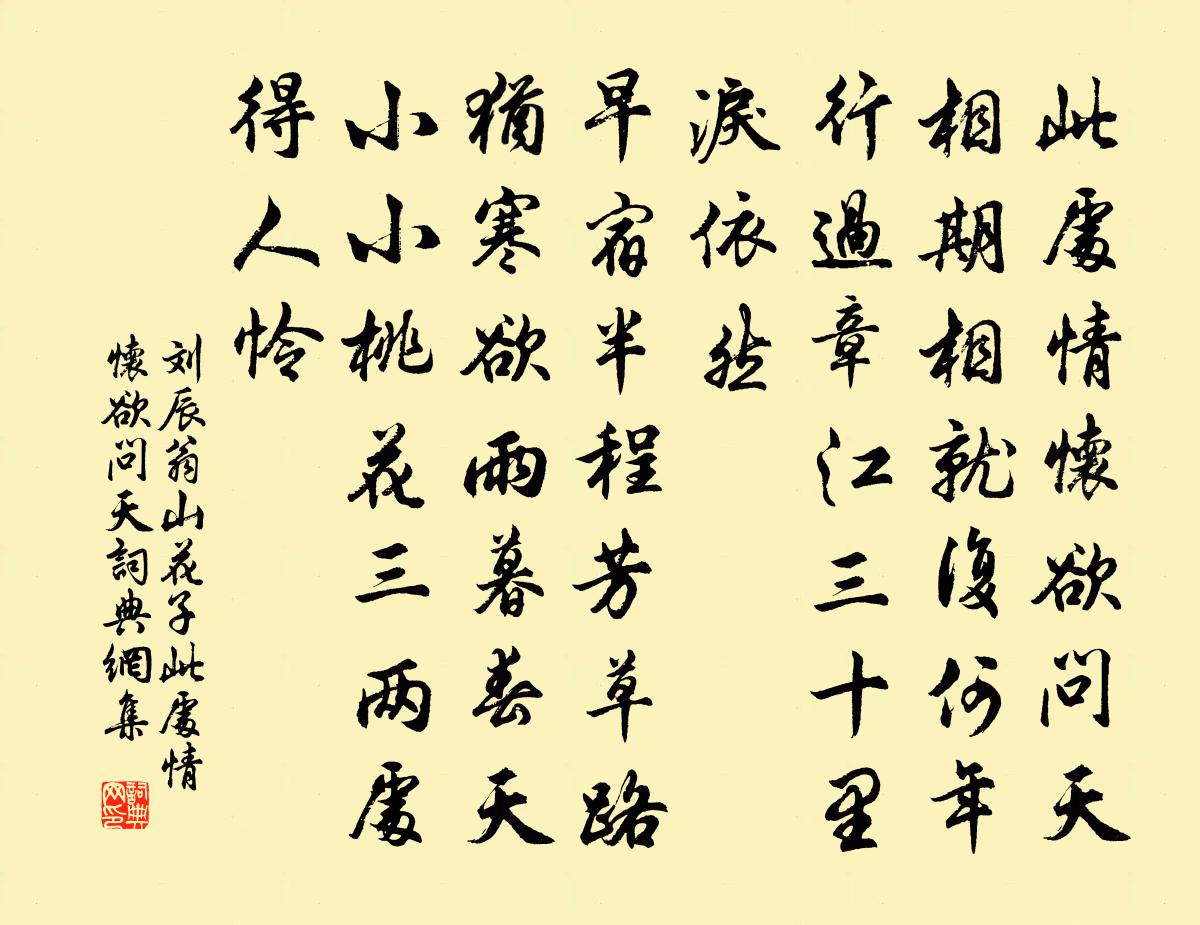 此處情懷欲問天
相期相就復何年
行過章江三十里
淚依然
早宿半程芳草路
猶寒欲雨暮春天
小小桃花三两處
得人怜
刘辰翁山花子此處情
懷欲問天詞典網集
詞典
网印